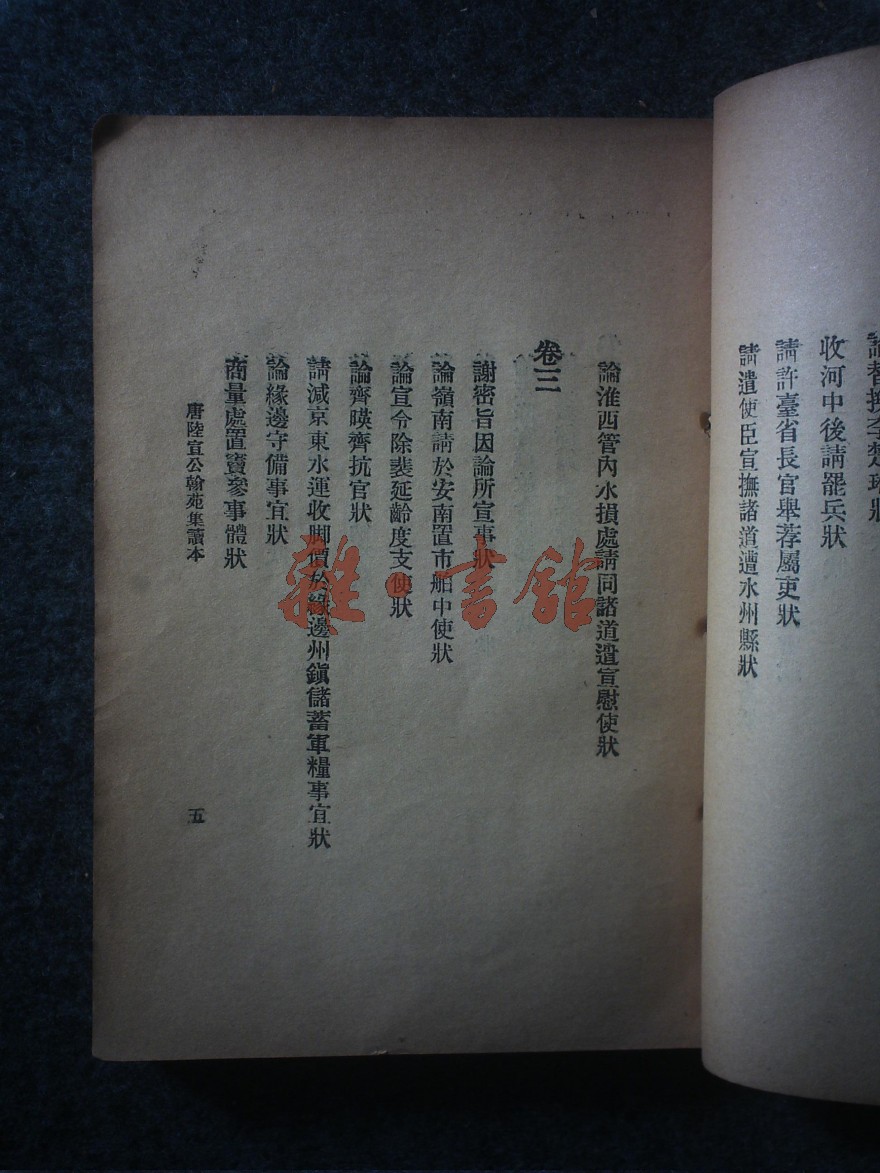 論替換李楚琳狀
收河中後請罷兵狀
請許臺省長官舉荐屬吏狀
請遣使臣宣撫諸道遭水州縣狀
論淮西管內水損處請同諸道遣宣慰使狀
卷三
謝密旨因論所宣事狀
論嶺南請於安南置市舶中使狀
論宣令除裴延齡度支使狀
論齊暎齊抗官狀
請減京東水運收脚價於緣邊州鎭儲蓄軍糧事宜狀
論緣邊守備事宜狀
商量處置竇參事體狀
唐陸宣公翰苑集讀本
五
雜·書館